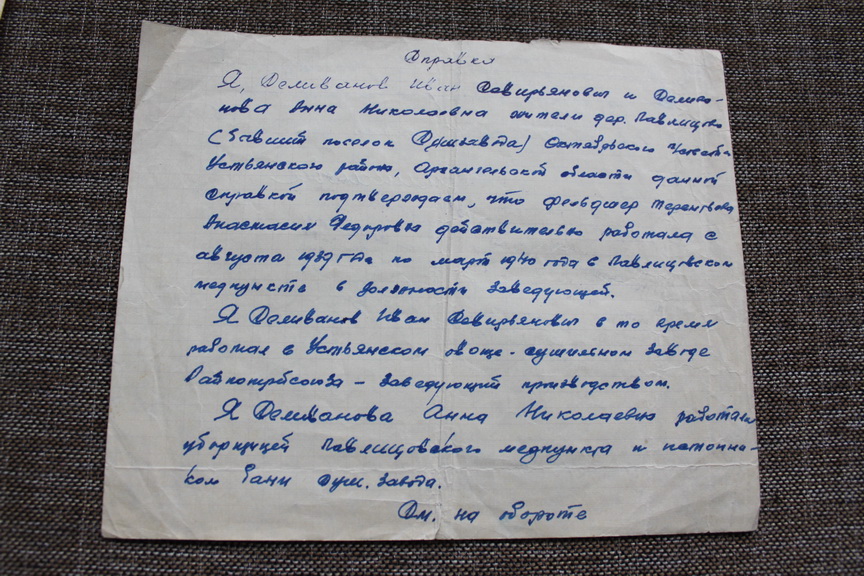 Справка
Я, Селиванов Иван Севирьянович и Селива-
нова Анна Николаевна жители дер. Павлицево
(бывший поселок Сушзавода) Октябрьского
Устьянского района, Архангельской области данной
справкой подтверждаем, что фельдшер Терентьева
Анастасия Федоровна действительно работала с
августа 1939 года по март 1940 года в Павлицевском
медпункте в должности заведующей.
Я Селиванов Иван Севирьянович в то время
работал в Устьянском овоще-сушильном заводе
Райпотребсоюза - заведующий производством.
Я Селиванова Анна Николаевна работала
уборщицей Павлицовского медпункта и истопни-
ком бани суш. завода.
См. на обороте